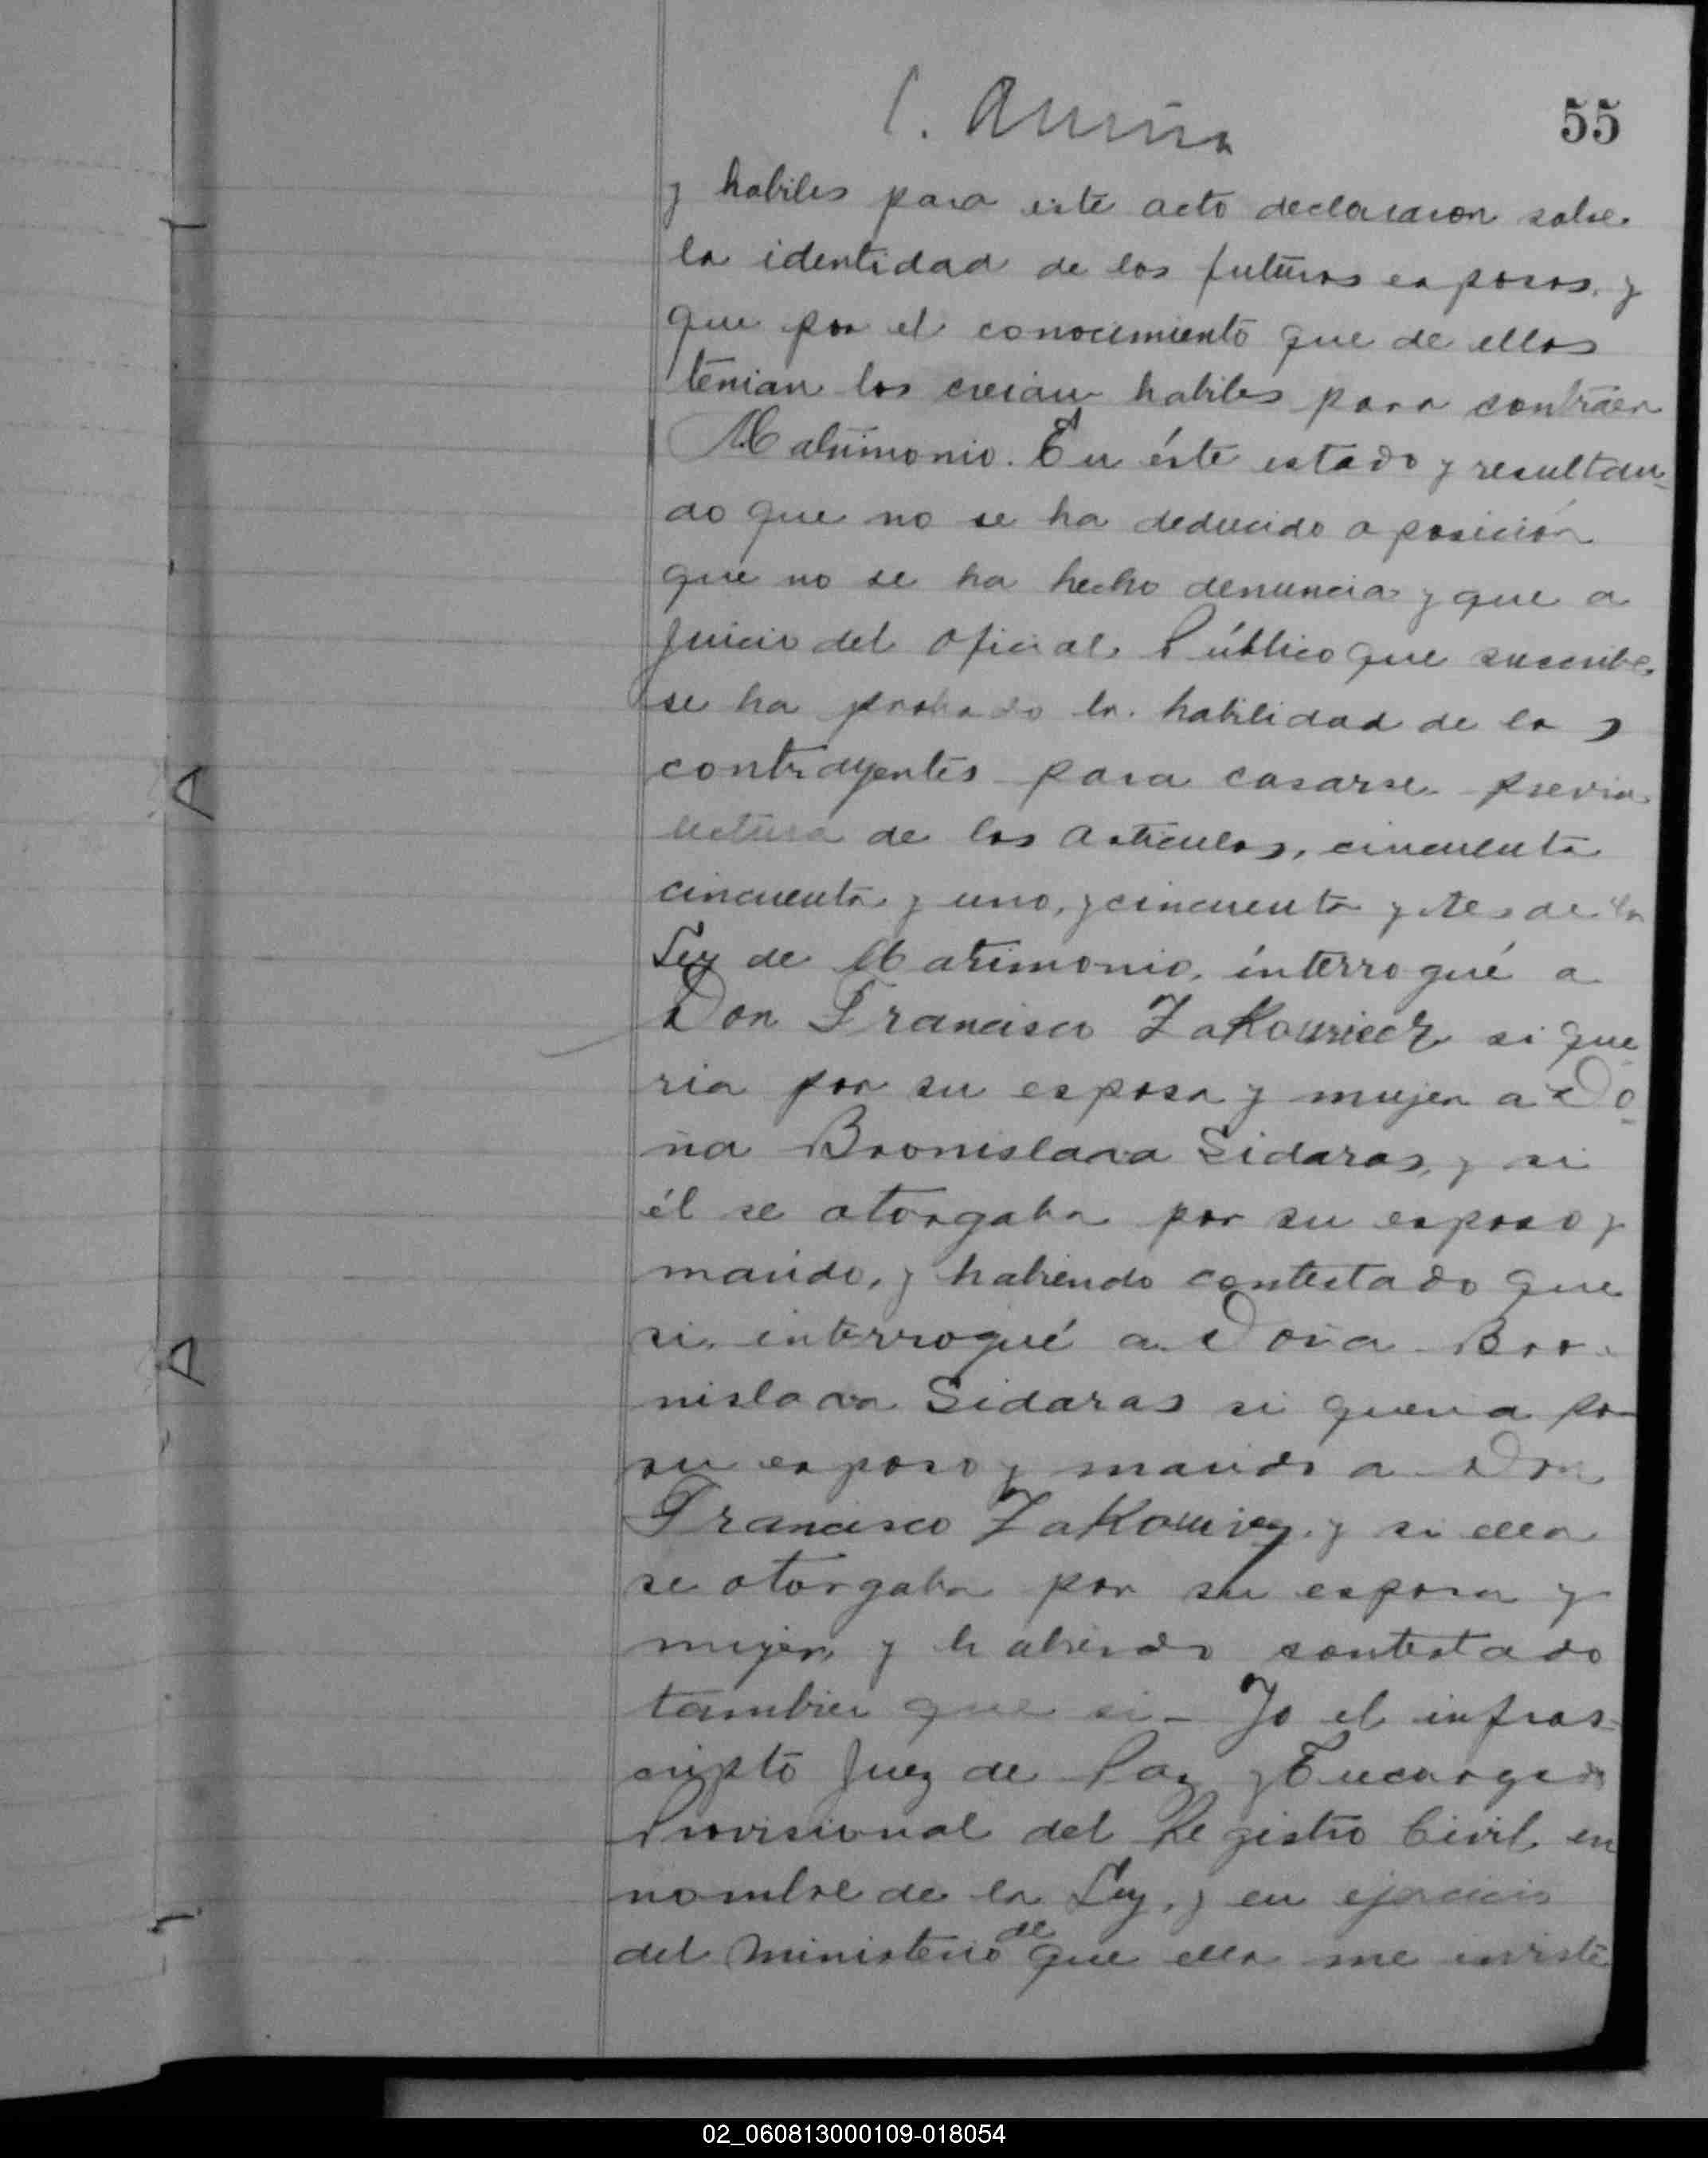 55
y habiles para este acto declararon sobre
la identidad de los futuros esposos, y
que por el conocimiento que de ellos
tenian los creian habiles para contraer
Matrimonio. En éste estado y resultan-
do que no se ha deducido oposición
que no se ha hecho denuncia y que a
juicio del oficial Público que suscribe
se ha probado la habilidad de los
contrayentes para casarse previa
lectura de los articulos, cincuenta
cincuenta y uno, y cincuenta y tres de la
Ley de Matrimonio, interrogué a
Don Francisco Zakouriecz si que-
ria por su esposa y mujer a Do-
ña Bronislava Sidaras, y si
él se otorgaba por su esposo y
marido, y habiendo contestado que
si, interrogué a Doña Bro-
nislava Sidaras si queria por
su esposo y marido a Don
Francisco Zakouriez y si ella
se otorgaba por su esposa y
mujer, y habiendo contestado
tambien que si- Yo el infras-
cripto Juez de Paz y Encargado
Provisional del Registro Civil en
nombre de la Ley, y en ejercicio
del ministerio de que ella me inviste
02_060813000109-018054